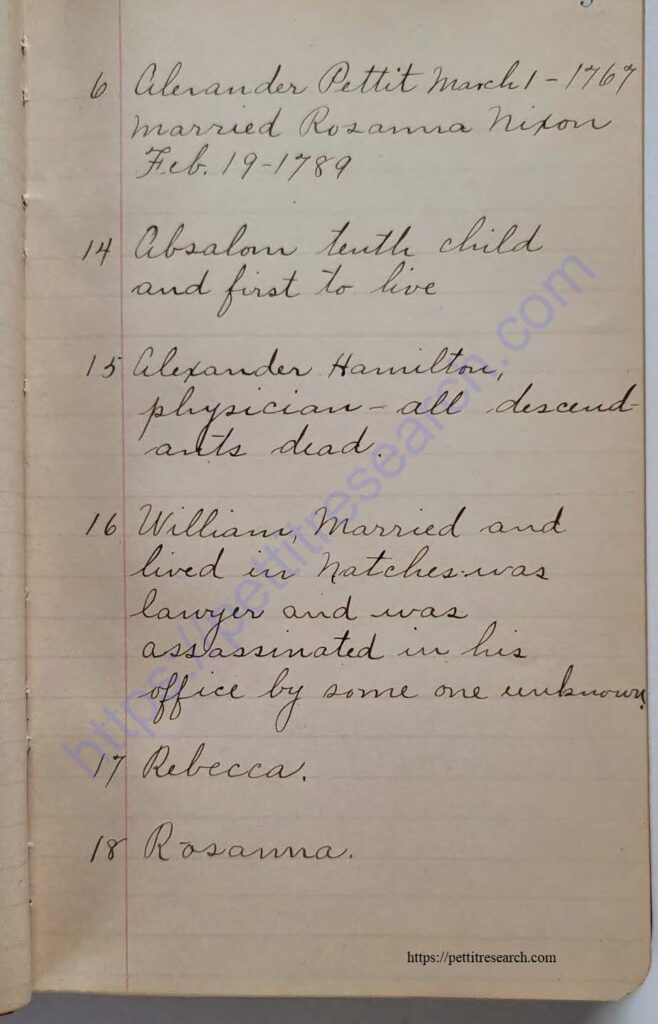 6 Alexander Pettit March 1 - 1767
married Rosanna Nixon
Feb. 19 - 1789
14 Absalom tenth child
and first to live
15 Alexander Hamilton,
physician - all descend-
ants dead.
16 William, Married and
lived in Natches. was
lawyer and was
assassinated in his
office by some one unknown.
17 Rebecca.
18 Rosanna.
https://pettitresearch.com
https://pettitresearch.com